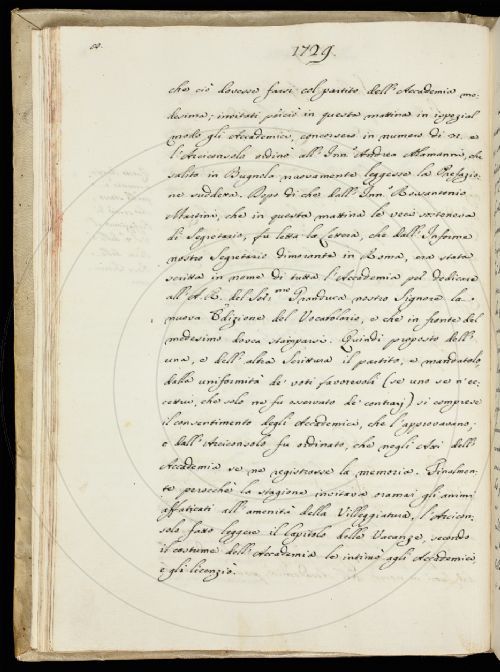 1729.
che ciò dovesse farsi col partito dell' Accademia me-
desima; invitati perciò in questa mattina in ispezial
modo gli Accademici, concorsero in numero di e
l'Arciconsolo ordinò all' Inn.º Andrea Alamanni, che
salito in Bugnola nuovamente leggesse la Prefazio-
ne suddetta. Dopo di che dall' Inn.º Rosantonio
Martini, che in questa mattina le veci sosteneva
di Segretario, fu letta la Lettera, che dall' Informe
nostro Segretario dimorante in Roma, era stata
scritta in nome di tutta l'Accademia per dedicare
all' A. R. del Ser.mo Granduca nostro Signore la
nuova Edizione del Vocabolario, e che in fronte del
medesimo dovea stamparsi. Quindi proposto dell'
una, e dell' altra Scrittura il partito, e mandatolo,
dalla uniformità de' voti favorevoli (se uno se n'ec-
cettui, che solo ne fu osservato de' contrarj) si comprese
il consentimento degli Accademici, che l'approvavano;
e dall' Arciconsolo fu ordinato, che negli Atti dell'
Accademia se ne registrasse la memoria. Finalmen-
te perocchè la stagione invitava oramai gli animi
affaticati all' amenità della Villeggiatura, l'Arcicon-
solo fatto leggere il Capitolo delle Vacanze, secondo
il costume dell' Accademia le intimò agli Accademici
e gli licenziò.